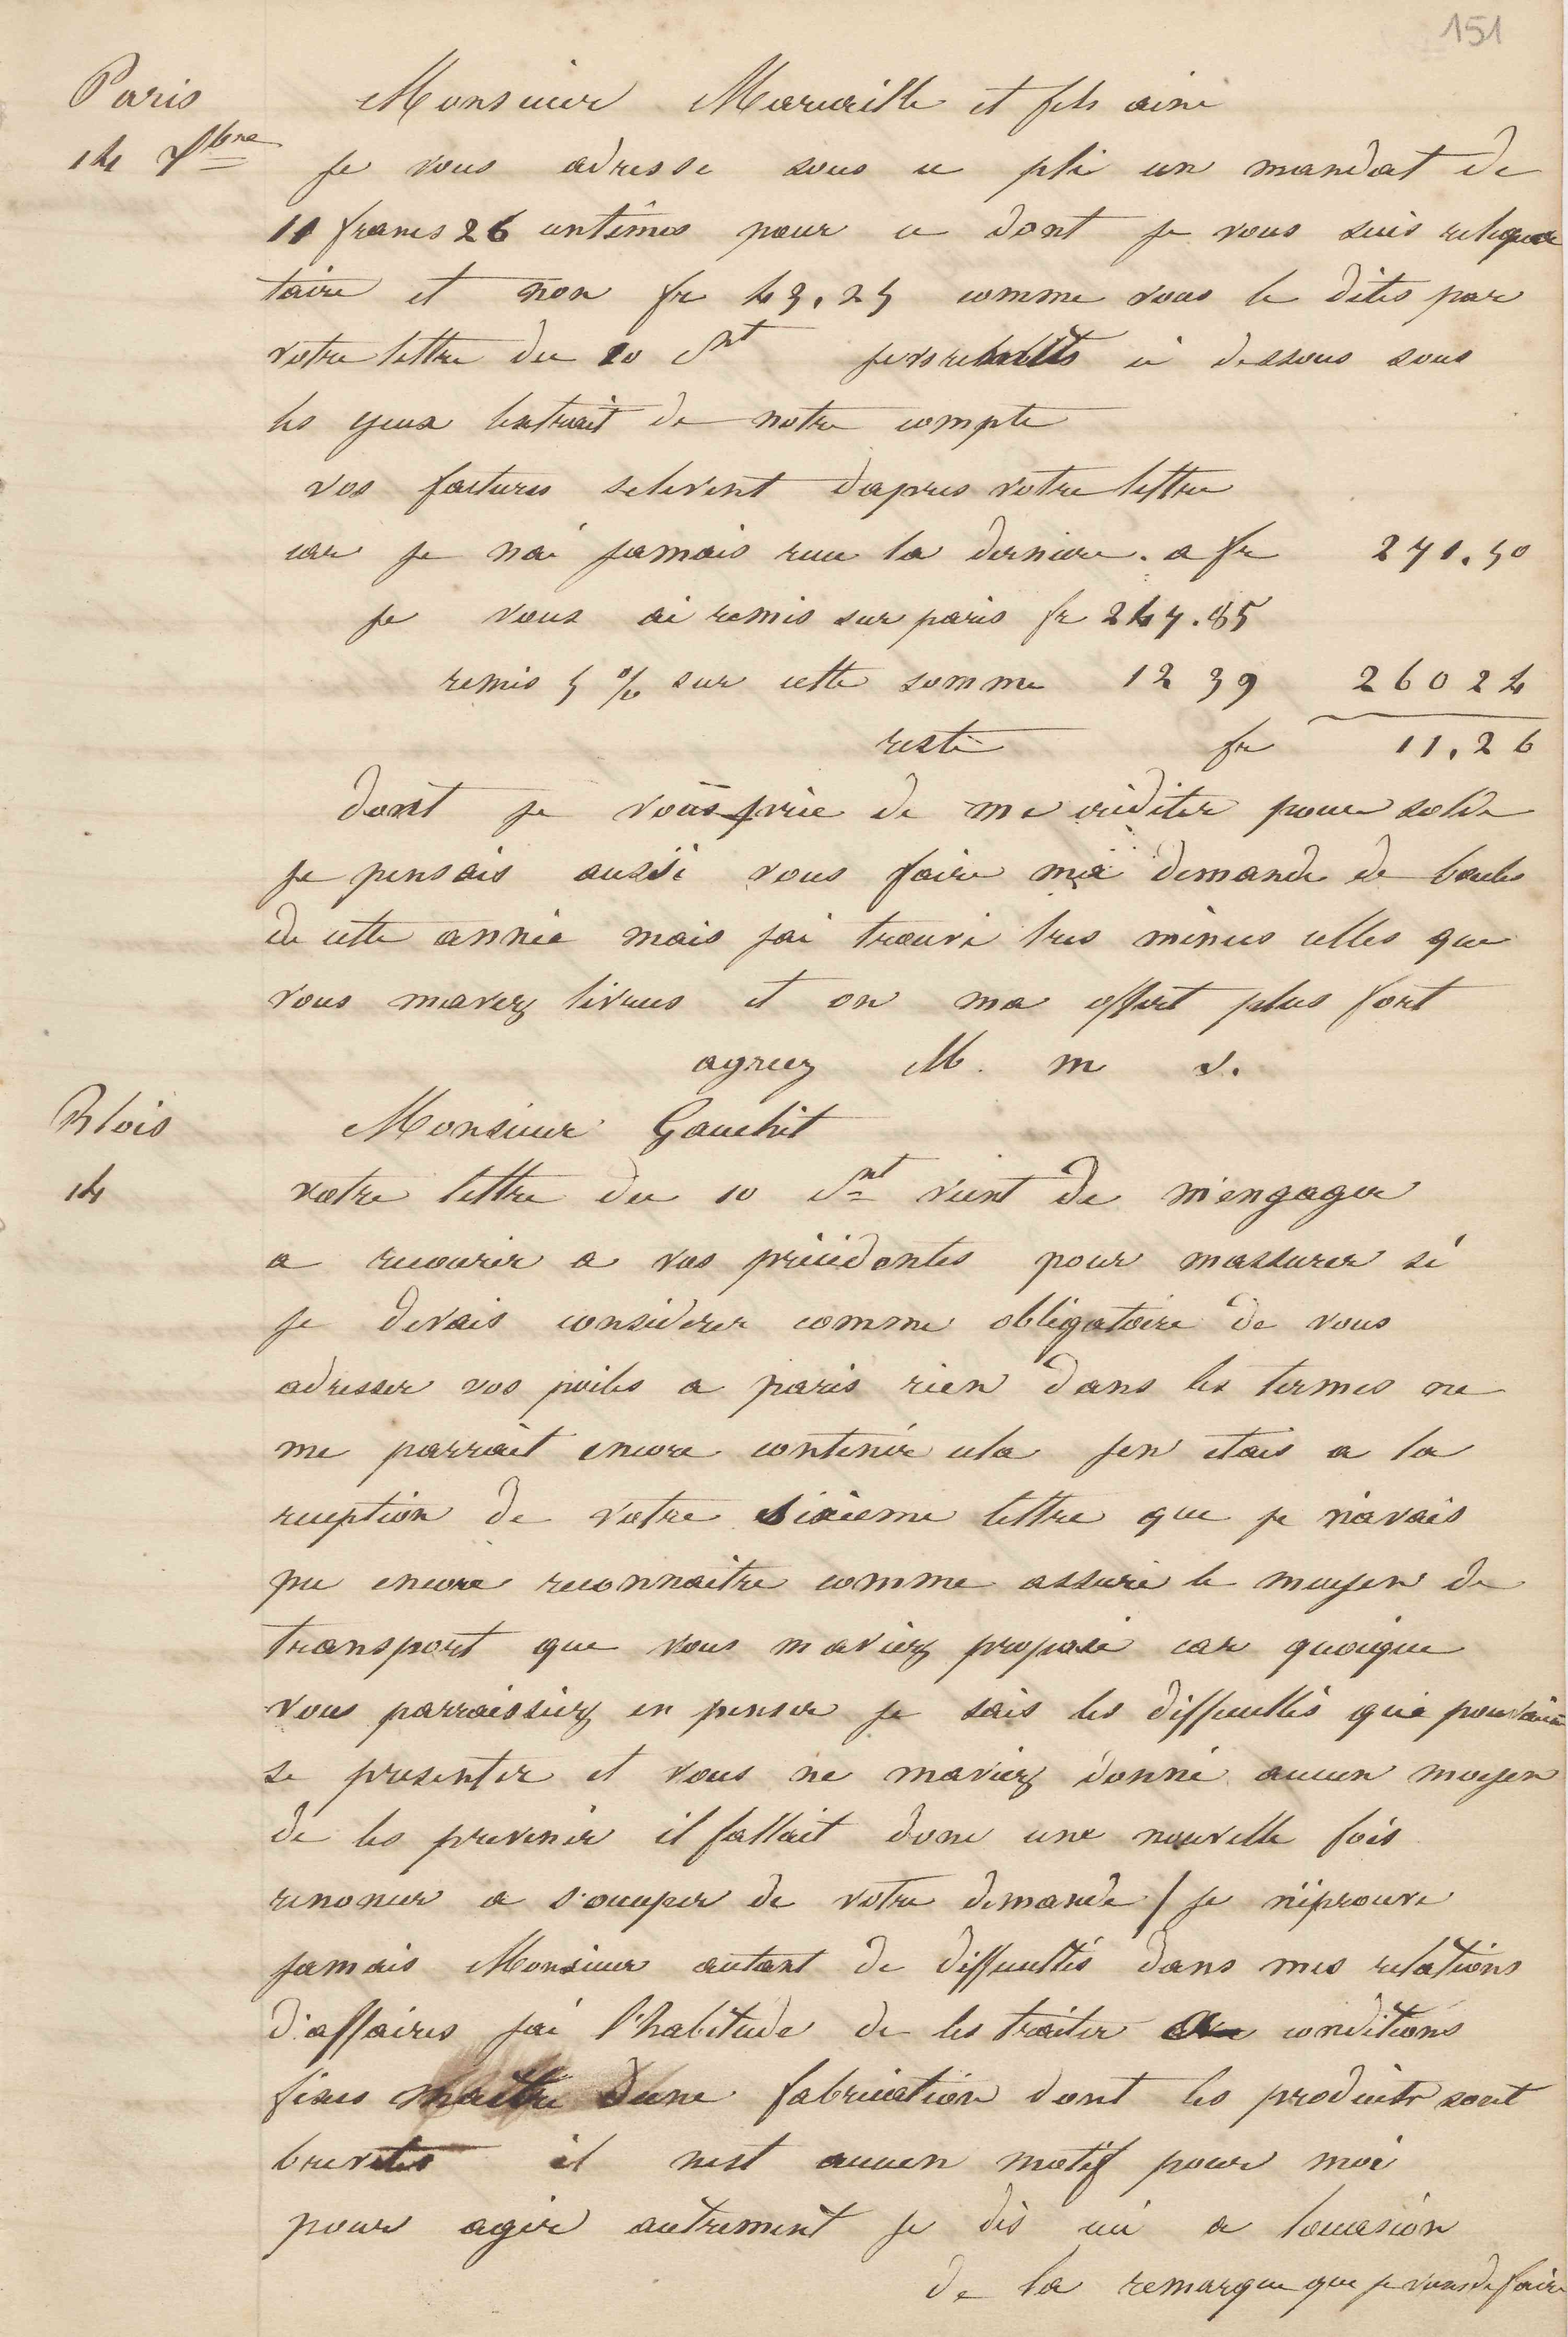 151
Paris
14 7bre
Monsieur Maruaille et fils ainé
je vous adresse sous ce pli un mandat de
11 francs 26 centimes pour ce dont je vous suis reliqua
taire et non fr 43.25 comme vous le dites par
votre lettre du 10 Cnt je vs remets ci dessous sous
les yeux lextrait de notre compte
vos factures selevent dapres votre lettre
car je nai jamais recu la derniere. a fr 271.50
je vous ai remis sur paris fr 247.85
remis 5 % sur cette somme 12 39 260 24
reste fr 11.26
dont je vous prie de me créditer pour solde
je pensais aussi vous faire ma demande de boules
de cette année mais jai trouvé tres minces celles que
vous mavez livrees et on ma offert plus fort
agreez M. m s.
Blois
14
Monsieur Gauchit
votre lettre du 10 Cnt vient de m'engager
a recourir a vos précédentes pour massurer si
je devais considerer comme obligatoire de vous
adresser vos poiles a paris rien dans les termes ne
me parrait encore contenir cela jen etais a la
reception de votre sixieme lettre que je n'avais
pu encore reconnaitre comme assuré le moyen de
transport que vous maviez proposé car quoique
vous parraissiez en penser je sais les difficultés qui pouvaien
se presenter et vous ne maviez donné aucun moyen
de les prevenir il fallait donc une nouvelle fois
renoncer a s'occuper de votre demande / je n'éprouve
jamais Monsieur autant de difficultés dans mes relations
d'affaires jai l'habitude de les traiter a conditions
fixes maitre dune fabrication dont les produits sont
brevetes il nest aucun motif pour moi
pour agir autrement je dis ceci a loccasion
de la remarque que je viens de faire